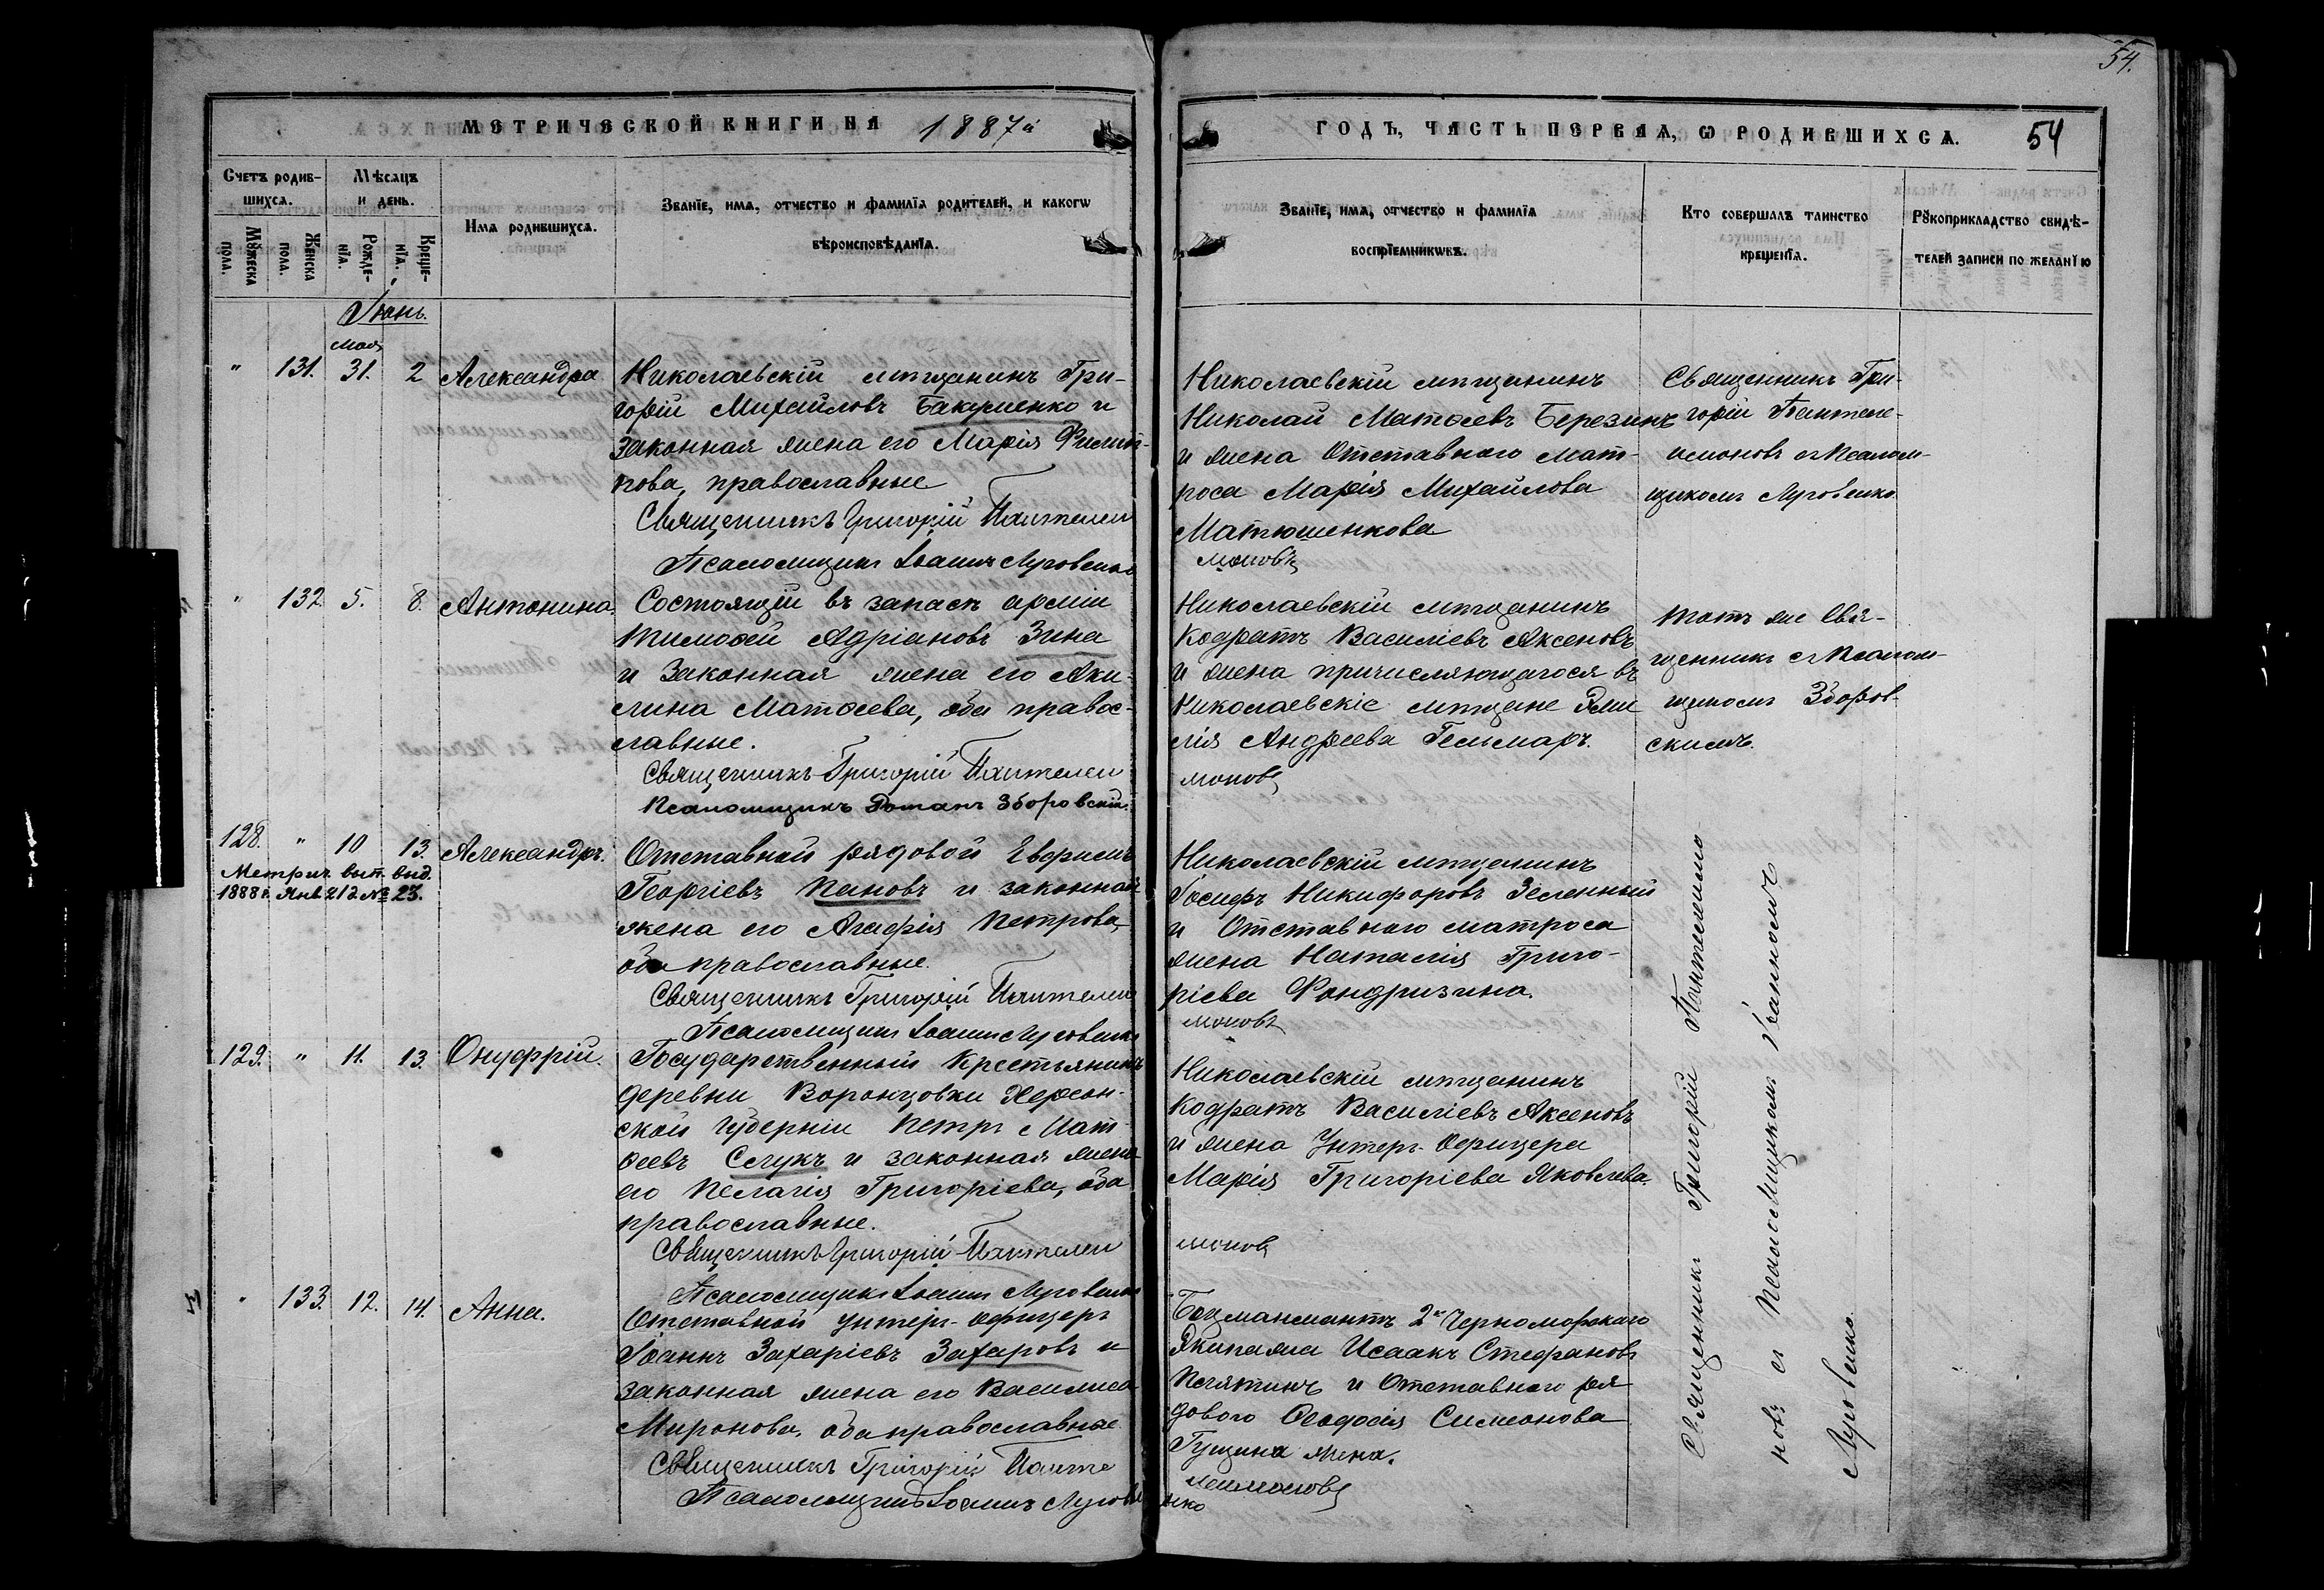 54.
МЕТРИЧЕСКОЙ КНИГИ НА 1887й
ГОДЪ, ЧАСТЬ ПЕРВАЯ, Ѡ РОДИВШИХСѦ. 54
Счетъ родив-
шихсѧ.
Мѣсяцъ
и день.
Мꙋжеска
пола.
Женска
пола.
Рожде-
нїѧ.
Креще-
нїѧ.
Имѧ родившихсѧ.
Званїе, имѧ, отчество и фамилїѧ родителей, и какогѡ
вѣроисповѣданїѧ.
Званїе, имѧ, отчество и фамилїѧ
воспрїемникѡвъ.
Кто совершалъ таинство
крещенїѧ.
Рꙋкоприкладство свидѣ-
телей записи по желанїю
Іюнь.
Мая
" 131. 31. 2 Александра
Николаевскій мѣщанинъ Гри-
горій Михайловъ Бакуменко и
законная жена его Марія Филип-
пова, православные
Священникъ Григорій Пантелеи
Псаломщикъ Іоаннъ Луговенко
Николаевскій мѣщанинъ
Николай Матѳеевъ Березинъ
и жена Отставного мат-
роса Марія Михайлова
Матюшенкова
моновъ
Священникъ Гри-
горій Пантеле-
имоновъ съ Псалом-
щикомъ Луговенко.
" 132. 5. 8. Антонина
Состоящій въ запасѣ арміи
Тимоѳей Адріановъ Зина
и законная жена его Аки-
лина Матѳеева, оба правос-
славные.
Священникъ Григорій Пантелеи
Псаломщикъ Романъ Зборовскій.
Николаевскій мѣщанинъ
Кодратъ Василіевъ Аксеновъ
и жена причисляющагося въ
Николаевскіе мѣщане Эми
лія Андреева Гельмаръ.
моновъ
тотъ же Свя-
щенникъ съ Псалом-
щикомъ Зборов-
скимъ.
128. " 10 13. Александръ.
Метрич. вып. выд.
1888 г. Янв 212 № 23.
Отставной рядовой Евфимъ
Георгіевъ Пановъ и законная
жена его Агафія Петрова,
оба православные.
Священникъ Григорій Пантелеи
Псаломщикъ Іоаннъ Луговенко
Николаевскій мѣщанинъ
Іосифъ Никифоровъ Зеленный
и Отставного матроса
жена Наталія Григо-
ріева Фондризина.
моновъ
129. " 11. 13. Онуфрій.
Государственный Крестьянинъ
деревни Воронцовки Херсон-
ской губерніи Петръ Мат-
ѳеевъ Сегукъ и законная жена
его Пелагія Григоріева, оба
православные.
Священникъ Григорій Пантелеи
Псаломщикъ Іоаннъ Луговенко
Николаевскій мѣщанинъ
Кодратъ Василіевъ Аксеновъ
и жена Унтеръ-Офицера
Марія Григоріева Яковлева.
моновъ
" 133. 12. 14. Анна.
Отставной унтеръ-офицеръ
Іоаннъ Захаріевъ Захаровъ и
законная жена его Василиса
Миронова, оба православные
Священникъ Григорій Панте
Псаломщикъ Іоаннъ Лугове
Боцманматъ 2го Черноморскаго
Экипажа Исаакъ Стефановъ
Печятинъ и Отставного ря
дового Ѳеодосія Симеонова
Гущина жена.
леимоновъ
нко
Священникъ Григорій Пантелеимо
новъ съ Псаломщикомъ Іоанномъ
Луговенко.